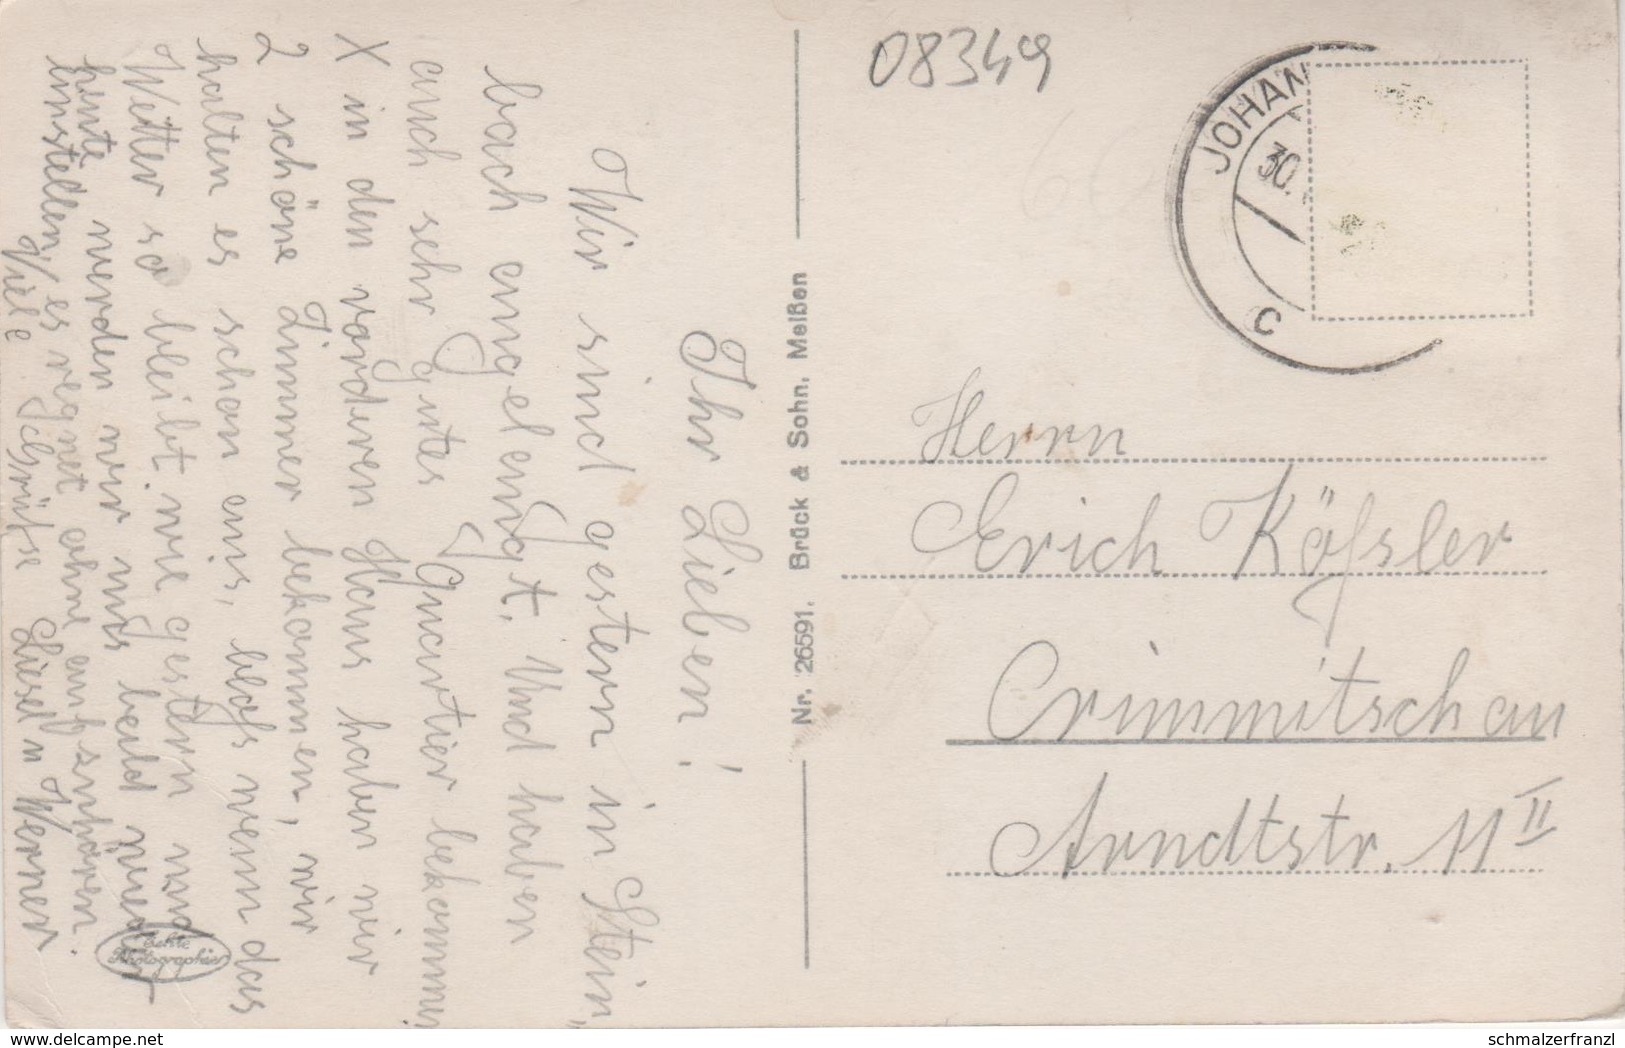 08349
JOHAN
30.
C
Ihr Lieben!
Wir sind gestern in Stein,,
bach angelengt. Und haben
auch sehr gutes Quartier bekommen,
X in den vorderen Haus haben wir
2 schöne Zimmer bekommen, wir
halten es schon aus, bloß wenn das
Wetter so bleibt wie gestern und
heute werden wir uns bald
umstellen, es regnet ohne aufzuhören.
Viele Grüße Liesel u Werner
Nr. 26591. Brück & Sohn, Meißen
Echte Photographie
Herrn
Erich Käßler
Crimmitschau
Arndtstr. 11 II
schmalzerfranzl
www.delcampe.net